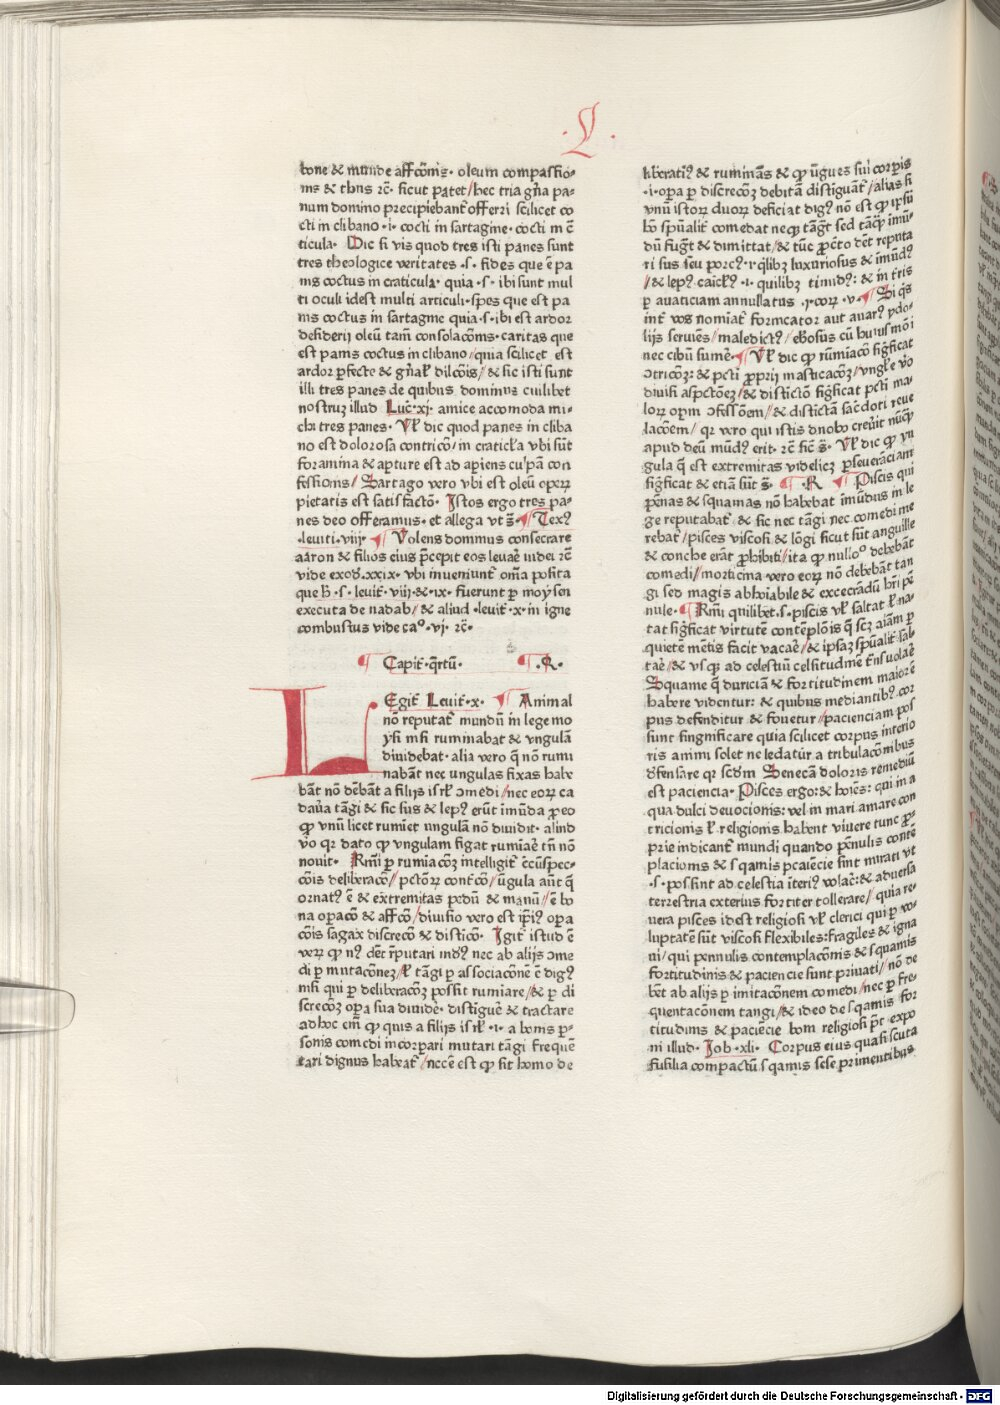 ·L·
bone & munde affc̄om̄s· oleum compassio⸗
nis & thns rc̄· sicut patet/hec tria gn̄a pa⸗
num domino precipiebant̄ offerri scilicet co
cti in clibano ·i· cocti in sartagine· cocti in c̄
ticula· Dic si vis quod tres isti panes sunt
tres theologice veritates ·s· fides que ē pa
nis coctus in craticula· quia ·s· ibi sunt mul
ti oculi idest multi articuli· spes que est pa
nis coctus in sartagine quia ·s· ibi est ardor
desiderij oleū tam̄ consolac̄oms· caritas que
est panis coctus in clibano/quia scilicet est
ardor p̄fecte & gn̄al̄ dilc̄ois/& sic isti sunt
illi tres panes de quibus dominus cuilibet
nostruʒ illud Luc̄·xj· amice accomoda mi⸗
chi tres panes· Vl̄ dic quod panes in cliba
no est dolorosa contric̄o/in craticl̄a vbi sūt
foramina & apture est ad apiens cu'pā con
fessionis/ Sartago vero vbi est oleū operꝝ
pietatis est satisfactō· Istos ergo tres pa⸗
nes deo offeramus· et allega vt s̄· ¶ Tex?
·leuiti·viij· ¶ Volens dominus consecrare
aāron & filios eius p̄cepit eos leuac̄ videi rc̄
vide exod̄·xxix· vbi inueniunt̄ om̄a posita
que h̄·s· leuit̄·viij·&·ix· fuerunt p moysen
executa de nadab/& aliud ·leuit̄·x· in igne
combustus vide caº·vj· rc̄·
¶ Capit̄·qrtū· ¶ ·R·
LEgit̄ Leuit̄·x· ¶ Animal
nō reputat̄ mundū in lege mo
ysi nisi ruminabat & vngulā
diuidebat· alia vero q̄ nō rumi
nabāt nec vngulas fixas habe
bāt nō dēbāt a filijs isrl̄ ꝯmedi/nec eoꝝ ca
dau̅a tāgi & sic sus & lep? erūt īmūda p̄eo
ꝙ vnū licet rumiet vngulā nō diuidit· aliud
v̊o qr dato ꝙ vngulam figat rumiaē tn̄ nō
nouit· Rm̄i p̄ rumiac̄oʒ intelligit̄ c̄cūspec⸗
c̄ois deliberac̄o/pctōꝝ cont̄c̄o/ūgula aūt q̄
ornat? ē & extremitas pedū & manū/ē bo
na oꝑac̄o & affc̄o/diuisio vero est ip̄i? oꝑa
c̄ois sagax discrec̄o & distic̄o· Igit̄ istud ē
verꝝ ꝙ n? det̄ r̄putari īnd? nec ab alijs ꝯme
di ꝑ mutac̄oneʒ/l̄ tāgi ꝑ associac̄onē ē dig?
nisi qui ꝑ deliberac̄oʒ possit rumiare/& ꝑ di
screc̄oʒ oꝑa sua diuidē· distiguē & tractare
adhoc em̄ ꝙ quis a filijs isrl̄ ·i· a bonis p̄⸗
sonis comedi incorpari mutari tāgi frequē
tari dignus habeat̄/nccē est ꝙ sit homo de
liberati? & ruminās & ꝙ ūgues sui corꝑis
·i· oꝑa ꝑ discrec̄oʒ debitā distiguāt̄/alias si
vnū istoꝝ duoꝝ deficiat dig? nō est ꝙ ip̄sū
hō sp̄ualit̄ comedat neqʒ tāgt̄ sed tāqʒ īmū⸗
dū fugt̄ & dimittat/& tūc p̄c̄to det̄ reputa
ri sus seu porc?·r qlibʒ luxuriosus & imūd?
/& lep? caicl̄? ·i· quilibʒ timid?: & in tris
ꝑ auaticiam annullatus ·j·corꝝ ·v· ¶ Si qis
int̄ vos nomiat̄ fornicator aut auar? ydo⸗
lijs seruiēs/maledict?/ebosus cū huiusmōi
nec cibū sumē· ¶ Vl̄ dic ꝙ rūmiac̄o sigficat
ꝯtric̄oʒ: & pcti ꝓprij masticac̄oʒ/vngl̄e v̊o
diuisi aspctōeʒ/& distictiō sigficat pcti ma⸗
loꝝ oꝑm ꝯfessōem/& distictā sac̄doti reue
lac̄oem/qr vero qui istis dnobo creūit nūcꝙ
apud deū mūd? erit· rc̄ sic̄ s̄· Vl̄ dic ꝙ vn
gula q̄ est extremitas videlicʒ ꝑseueraciam
sigficat & etiā sūt s̄· ¶·R ¶ Piscis qui
pēnas & squamas nō habebat īmūdus in le
ge reputabat̄ & sic nec tāgi nec comedi me
rebat̄/pisces viscosi & lōgi sicut sūt anguille
& conche erāt ꝓhibiti/ita ꝙ nulloº debebāt
comedi/morticina vero eoꝝ nō debebāt tan
gi sed magis abhoiabile & excecrādū hr̄i pē
nule· ¶ Rm̄i quilibet·s·piscis vl̄ saltat l̄ na⸗
tat sigficat virtutē contēplōis q̄ scʒ aīam ꝑ
quietē mētis facit vacaē/& ip̄saʒ sp̄ualit̄ lab
taē/& vsqʒ ad celestiū celsitudinē tn̄suolaē
Squame q̄ duriciā & fortitudinem maiorē
habere videntur: & quibus mediantib? cor
pus defenditur & fouetur/pacienciam pos
sunt singnificare quia scilicet corpus interio
ris animi solet ne ledatūr a tribulac̄onibus
d̄fensare qr scd̄m Senecā doloris remediū
est paciencia· Pisces ergo: & hoiēs: qui in a
qua dulci deuocionis: vel in mari amare con
tricionis l̄ religionis habent viuere tunc ꝓ⸗
prie indicant̄ mundi quando pēnulis contē
placionis & sqamis pcaiēcie sint mirati vt
·s· possint ad celestia īteri? volac̄: & aduersa
terrestria exterius fortiter tollerare/quia re
uera pisces idest religiosi vl̄ clerici qui ꝑ vo⸗
luptatē sūt viscosi flexibiles: fragiles & igna
ui/qui pennulis contemplac̄onis & squamis
fortitudinis & paciencie sunt priuati/nō de
bēt ab alijs ꝑ imitac̄onem comedi/nec ꝑ fre⸗
quentac̄onem tangi/& ideo de sqamis for
titudinis & paciēcie boni religiosi pn̄t expo
ni illud· Job·xli· Corpus eius quasi scuta
fusilia compactū sqamis sese primentibus
Digitalisierung gefördert durch die Deutsche Forschungsgemeinschaft - DFG